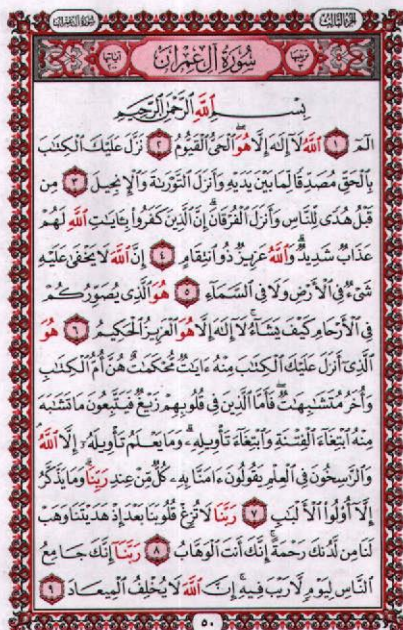 سُورَةُ آلِ عِمْرَانَ الجُزْءُ الثَّالِثُ
ترتيبها ٣ سُورَةُ آلِ عِمْرَان آياتها ٢٠٠
بِسْمِ ٱللَّهِ ٱلرَّحْمَٰنِ ٱلرَّحِيمِ
الٓمٓ ١ ٱللَّهُ لَآ إِلَٰهَ إِلَّا هُوَ ٱلْحَىُّ ٱلْقَيُّومُ ٢ نَزَّلَ عَلَيْكَ ٱلْكِتَٰبَ
بِٱلْحَقِّ مُصَدِّقًا لِّمَا بَيْنَ يَدَيْهِ وَأَنزَلَ ٱلتَّوْرَىٰةَ وَٱلْإِنجِيلَ ٣ مِن
قَبْلُ هُدًى لِّلنَّاسِ وَأَنزَلَ ٱلْفُرْقَانَ ۗ إِنَّ ٱلَّذِينَ كَفَرُوا۟ بِـَٔايَٰتِ ٱللَّهِ لَهُمْ
عَذَابٌ شَدِيدٌ ۗ وَٱللَّهُ عَزِيزٌ ذُو ٱنتِقَامٍ ٤ إِنَّ ٱللَّهَ لَا يَخْفَىٰ عَلَيْهِ
شَىْءٌ فِى ٱلْأَرْضِ وَلَا فِى ٱلسَّمَآءِ ٥ هُوَ ٱلَّذِى يُصَوِّرُكُمْ
فِى ٱلْأَرْحَامِ كَيْفَ يَشَآءُ ۚ لَآ إِلَٰهَ إِلَّا هُوَ ٱلْعَزِيزُ ٱلْحَكِيمُ ٦ هُوَ
ٱلَّذِىٓ أَنزَلَ عَلَيْكَ ٱلْكِتَٰبَ مِنْهُ ءَايَٰتٌ مُّحْكَمَٰتٌ هُنَّ أُمُّ ٱلْكِتَٰبِ
وَأُخَرُ مُتَشَٰبِهَٰتٌ ۖ فَأَمَّا ٱلَّذِينَ فِى قُلُوبِهِمْ زَيْغٌ فَيَتَّبِعُونَ مَا تَشَٰبَهَ
مِنْهُ ٱبْتِغَآءَ ٱلْفِتْنَةِ وَٱبْتِغَآءَ تَأْوِيلِهِۦ ۗ وَمَا يَعْلَمُ تَأْوِيلَهُۥٓ إِلَّا ٱللَّهُ ۗ
وَٱلرَّٰسِخُونَ فِى ٱلْعِلْمِ يَقُولُونَ ءَامَنَّا بِهِۦ كُلٌّ مِّنْ عِندِ رَبِّنَا ۗ وَمَا يَذَّكَّرُ
إِلَّآ أُو۟لُوا۟ ٱلْأَلْبَٰبِ ٧ رَبَّنَا لَا تُزِغْ قُلُوبَنَا بَعْدَ إِذْ هَدَيْتَنَا وَهَبْ
لَنَا مِن لَّدُنكَ رَحْمَةً ۚ إِنَّكَ أَنتَ ٱلْوَهَّابُ ٨ رَبَّنَآ إِنَّكَ جَامِعُ
ٱلنَّاسِ لِيَوْمٍ لَّا رَيْبَ فِيهِ ۚ إِنَّ ٱللَّهَ لَا يُخْلِفُ ٱلْمِيعَادَ ٩
٥٠